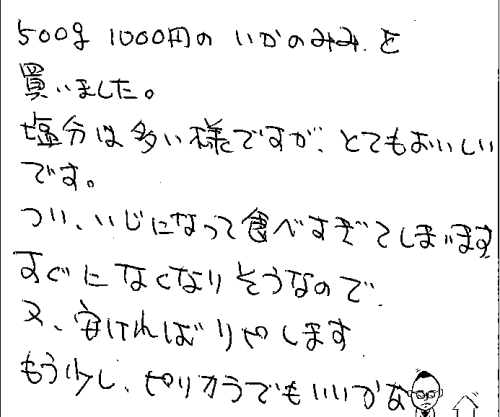 500g 1000円の いかのみみ を
買いました。
塩分は多い様ですが、とてもおいしい
です。
つい、いじになって食べすぎてしまいます
すぐに なくなりそうなので
又、安ければ リピします
もう少し、ピリカラでもいいかな